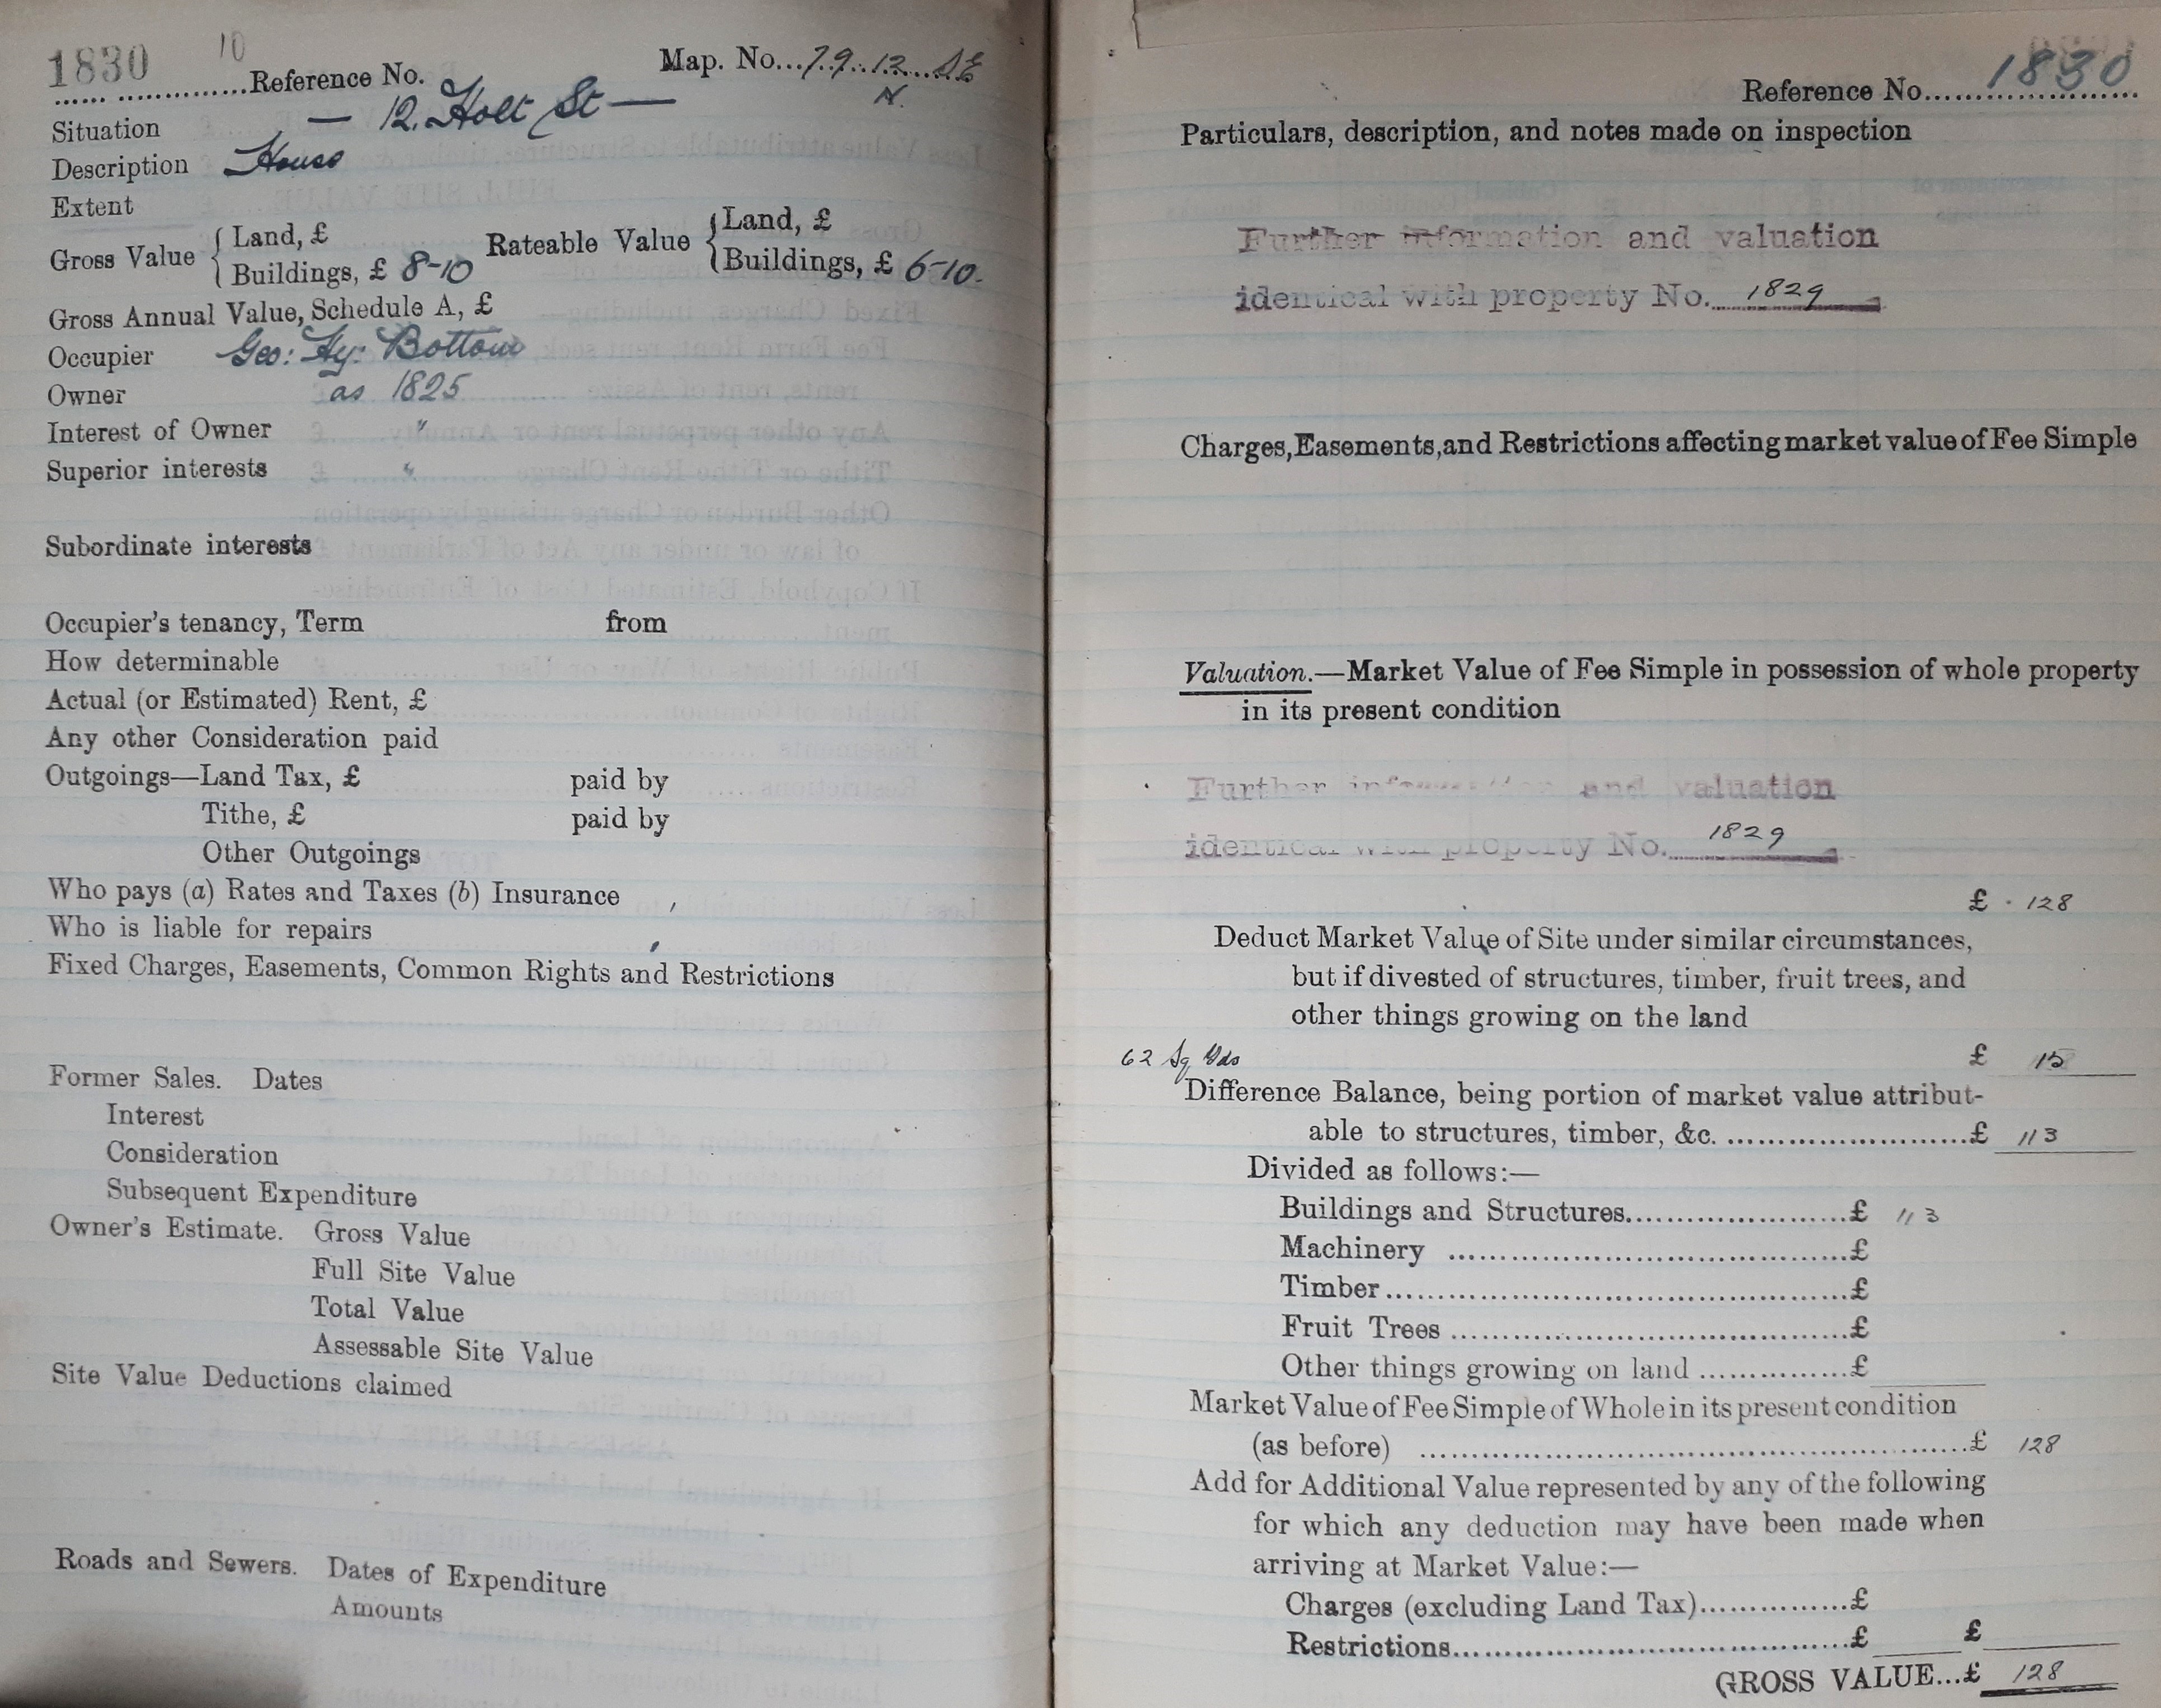 1830 10 Reference No. Map. No...79.12.SE
N.
Situation — 12. Holt St —
Description House
Extent
Gross Value { Land, £ Rateable Value { Land, £
Buildings, £ 8-10 Buildings, £ 6-10.
Gross Annual Value, Schedule A, £
Occupier Geo: Hy: Bottom
Owner as 1825
Interest of Owner "
Superior interests "
Subordinate interests
Occupier's tenancy, Term from
How determinable
Actual (or Estimated) Rent, £
Any other Consideration paid
Outgoings—Land Tax, £ paid by
Tithe, £ paid by
Other Outgoings
Who pays (a) Rates and Taxes (b) Insurance
Who is liable for repairs
Fixed Charges, Easements, Common Rights and Restrictions
Former Sales. Dates
Interest
Consideration
Subsequent Expenditure
Owner's Estimate. Gross Value
Full Site Value
Total Value
Assessable Site Value
Site Value Deductions claimed
Roads and Sewers. Dates of Expenditure
Amounts
Reference No. 1830
Particulars, description, and notes made on inspection
Further information and valuation
identical with property No. 1829
Charges, Easements, and Restrictions affecting market value of Fee Simple
Valuation.—Market Value of Fee Simple in possession of whole property
in its present condition
Further information and valuation
identical with property No. 1829
£ 128
Deduct Market Value of Site under similar circumstances,
but if divested of structures, timber, fruit trees, and
other things growing on the land
62 Sq Yds £ 15
Difference Balance, being portion of market value attribut-
able to structures, timber, &c. ........................£ 113
Divided as follows:—
Buildings and Structures......................£ 113
Machinery ......................£
Timber......................£
Fruit Trees ......................£
Other things growing on land ...............£
Market Value of Fee Simple of Whole in its present condition
(as before) ......................£ 128
Add for Additional Value represented by any of the following
for which any deduction may have been made when
arriving at Market Value:—
Charges (excluding Land Tax)...............£
Restrictions......................£ £
GROSS VALUE...£ 128